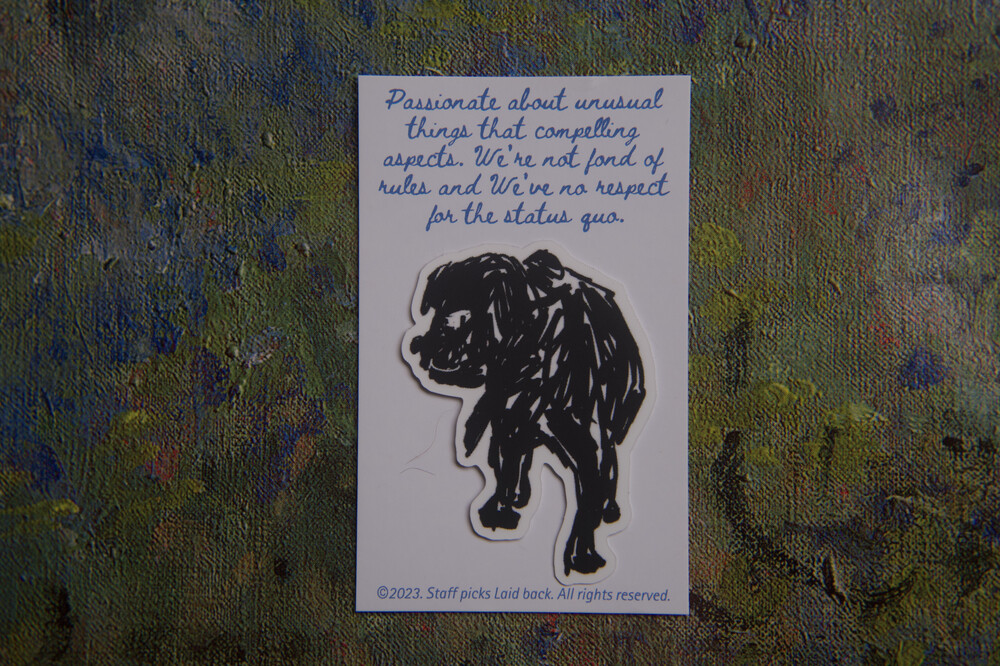 Passionate about unusual
things that compelling
aspects. We're not fond of
rules and We've no respect
for the status quo.
©2023. Staff picks Laid back. All rights reserved.